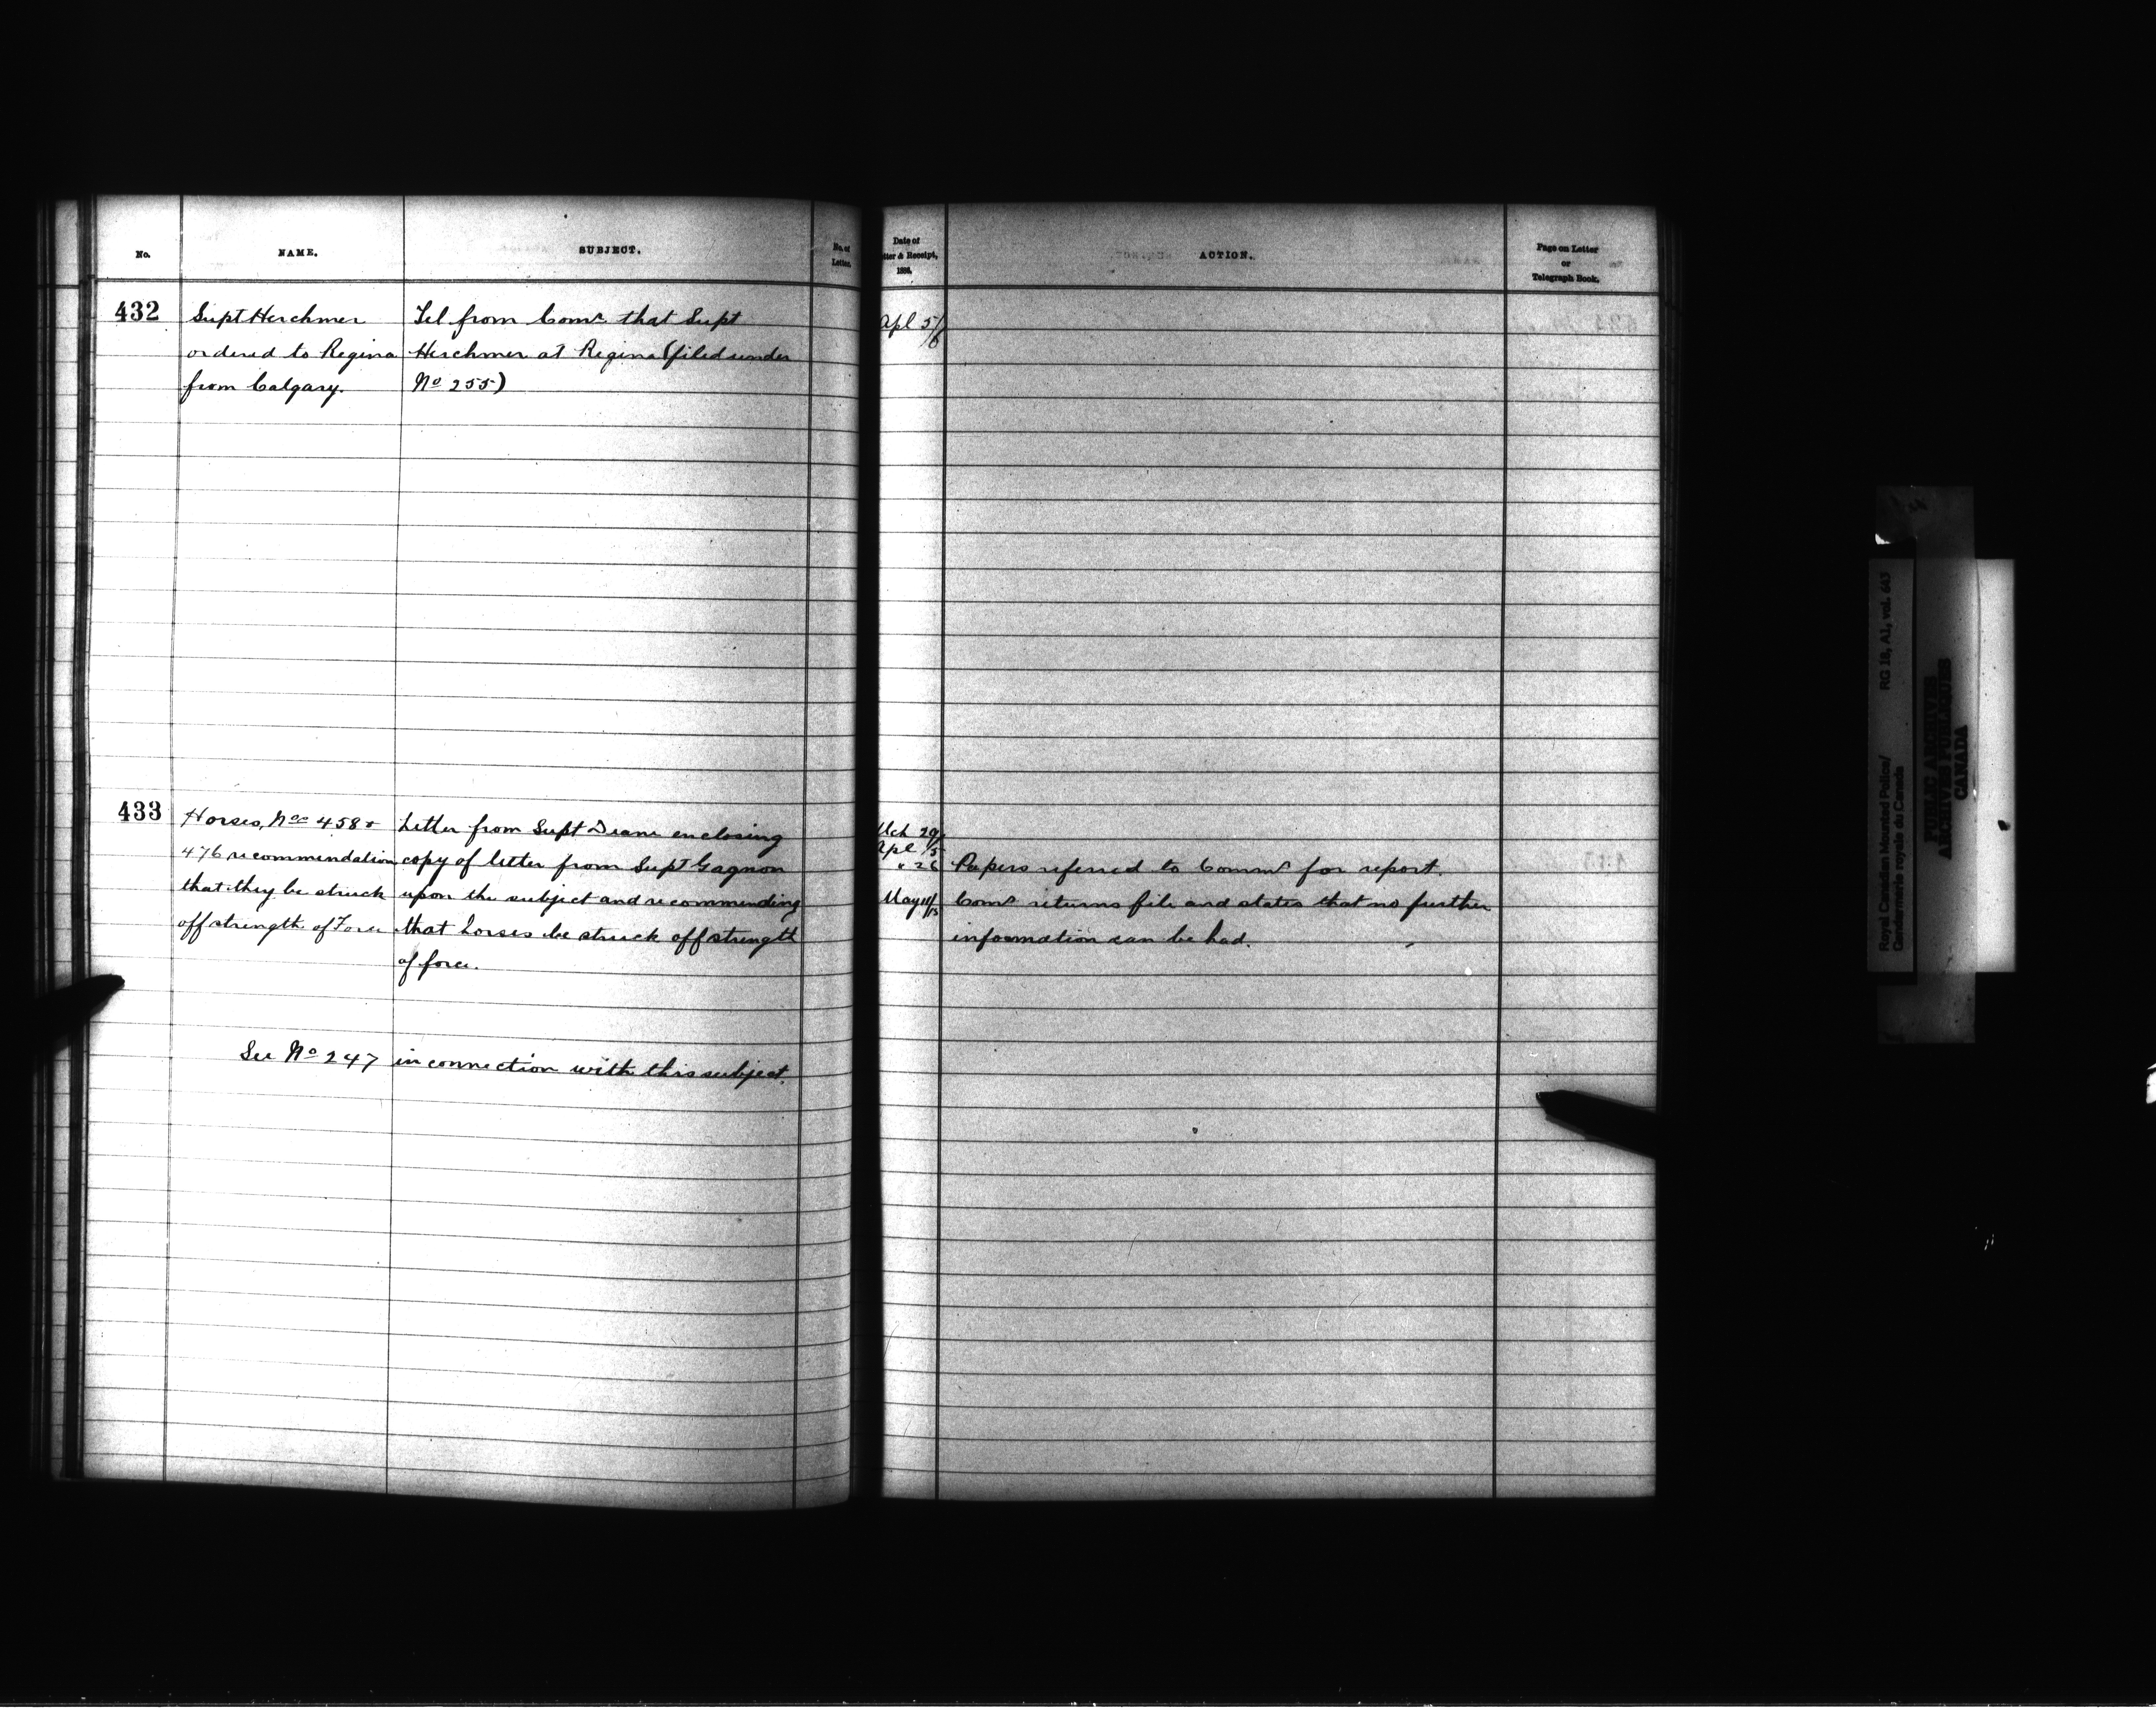 No. NAME. SUBJECT. No. of Letter.
432 Supt Herchmer Tel from Comr. that Supt
ordered to Regina Herchmer at Regina (filed under
from Calgary. No 255)
433 Horses, Nos 458 &
476 recommendation
that they be struck
off strength of Force
Letter from Supt Deane enclosing
copy of letter from Supt Gagnon
upon the subject and recommending
that horses be struck off strength
of force.
See No 247 in connection with this subject.
Date of
Letter & Receipt,
1886.
ACTION.
Page on Letter
or
Telegraph Book.
Apl 5/6
Mch 29/
Apl /5
" 26 Papers referred to Commr for report.
May 11/15 Comr returns file and states that no further
information can be had.
Royal Canadian Mounted Police/ RG 18, A1, vol. 643
Gendarmerie royale du Canada
PUBLIC ARCHIVES
ARCHIVES PUBLIQUES
CANADA